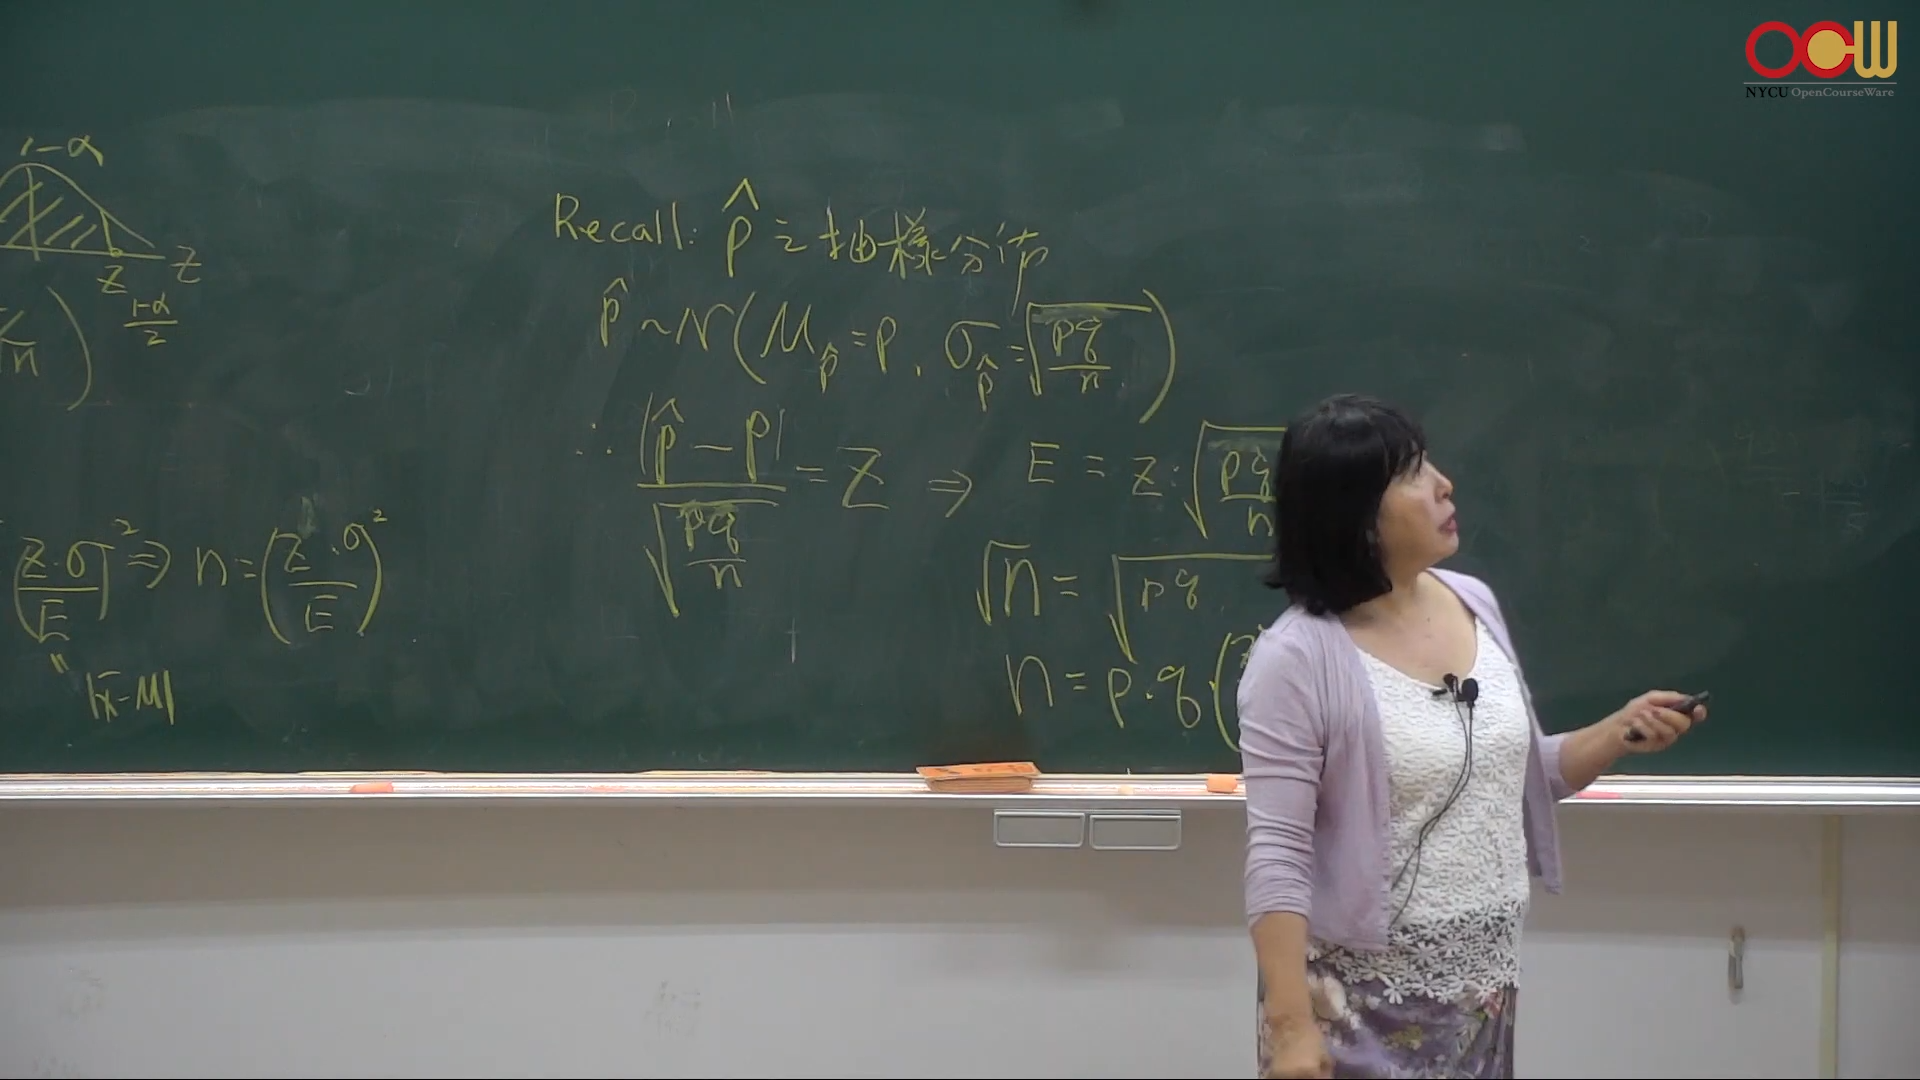 OCW
NYCU OpenCourseWare
1-α
Z Z
1-α/2
√n )
(Z·σ/E)² ⇒ n = (Z·σ/E)²
"
|x̄-M|
Recall: p̂ 之抽樣分佈
p̂ ~ N(M_p̂ = p, σ_p̂ = √(pq/n))
∴ |p̂ - p| / √(pq/n) = Z ⇒ E = Z·√(pq/n
√n = √pq
n = p·q·(Z